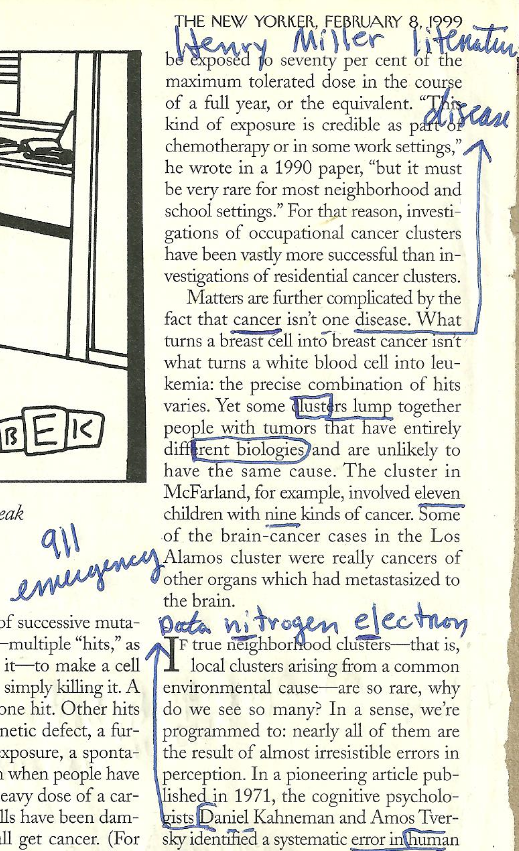 THE NEW YORKER, FEBRUARY 8, 1999
Henry Miller
be exposed to seventy per cent of the
maximum tolerated dose in the course
of a full year, or the equivalent. "This
disease
kind of exposure is credible as part of
chemotherapy or in some work settings,"
he wrote in a 1990 paper, "but it must
be very rare for most neighborhood and
school settings." For that reason, investi-
gations of occupational cancer clusters
have been vastly more successful than in-
vestigations of residential cancer clusters.
Matters are further complicated by the
fact that cancer isn't one disease. What
turns a breast cell into breast cancer isn't
what turns a white blood cell into leu-
kemia: the precise combination of hits
varies. Yet some clusters lump together
people with tumors that have entirely
different biologies and are unlikely to
have the same cause. The cluster in
McFarland, for example, involved eleven
children with nine kinds of cancer. Some
of the brain-cancer cases in the Los
Alamos cluster were really cancers of
other organs which had metastasized to
the brain.
data nitrogen electron
IF true neighborhood clusters—that is,
local clusters arising from a common
environmental cause—are so rare, why
do we see so many? In a sense, we're
programmed to: nearly all of them are
the result of almost irresistible errors in
perception. In a pioneering article pub-
lished in 1971, the cognitive psycholo-
gists Daniel Kahneman and Amos Tver-
sky identified a systematic error in human
B E K
eak
911
emergency
of successive muta-
—multiple "hits," as
it—to make a cell
simply killing it. A
one hit. Other hits
netic defect, a fur-
exposure, a sponta-
n when people have
eavy dose of a car-
lls have been dam-
all get cancer. (For